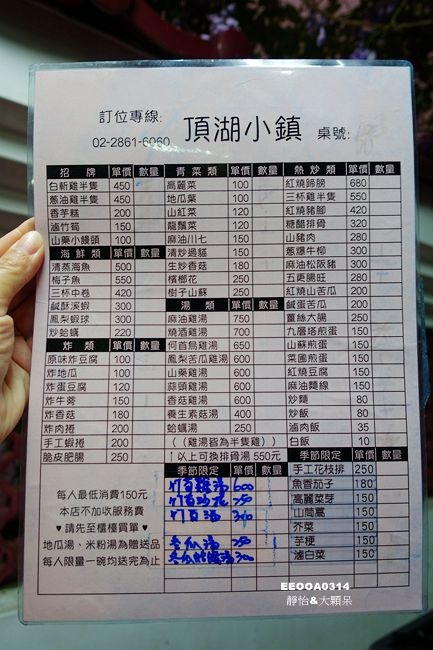 訂位專線:
02-2861-6060
頂湖小鎮
桌號:
招牌 單價 數量
白斬雞半隻 450
蔥油雞半隻 450
香芋糕 200
滷竹筍 150
山藥小饅頭 100
海鮮類 單價 數量
清蒸海魚 500
梅子魚 550
三杯中卷 420
鹹酥溪蝦 300
鳳梨蝦球 300
炒蛤蠣 220
炸類 單價 數量
原味炸豆腐 100
炸地瓜 100
炸蛋豆腐 120
炸牛蒡 150
炸香菇 180
炸肉捲 200
手工蝦捲 200
脆皮肥腸 250
每人最低消費150元
本店不加收服務費
♥請先至櫃檯買單♥
地瓜湯、米粉湯為贈送品
每人限量一碗均送完為止
青菜類 單價 數量
高麗菜 100
地瓜葉 100
山紅菜 120
龍鬚菜 120
麻油川七 150
清炒過貓 150
生炒香菇 180
檳榔花 250
樹子山蘇 250
湯類 單價 數量
麻油雞湯 750
燒酒雞湯 700
何首烏雞湯 650
鳳梨苦瓜雞湯 600
山藥雞湯 600
蒜頭雞湯 600
香菇雞湯 600
養生素菇湯 400
蛤蠣湯 250
((雞湯皆為半隻雞))
↑以上可換排骨湯 550元
季節限定 單價 數量
熱炒類 單價 數量
紅燒蹄膀 680
三杯雞半隻 550
紅燒豬腳 420
糖醋排骨 320
山豬肉 280
蔥爆牛柳 300
麻油松阪豬 300
五更腸旺 280
紅燒山苦瓜 200
鹹蛋苦瓜 200
薑絲大腸 250
九層塔煎蛋 150
山蘇煎蛋 150
菜圃煎蛋 150
紅燒豆腐 150
麻油麵線 150
炒麵 80
炒飯 80
滷肉飯 35
白飯 10
季節限定 單價 數量
手工花枝排 250
魚香茄子 180
高麗菜芽 150
山茼蒿 150
芥菜 150
芋梗 150
滷白菜 150
EEOOA0314
靜怡&大顆呆